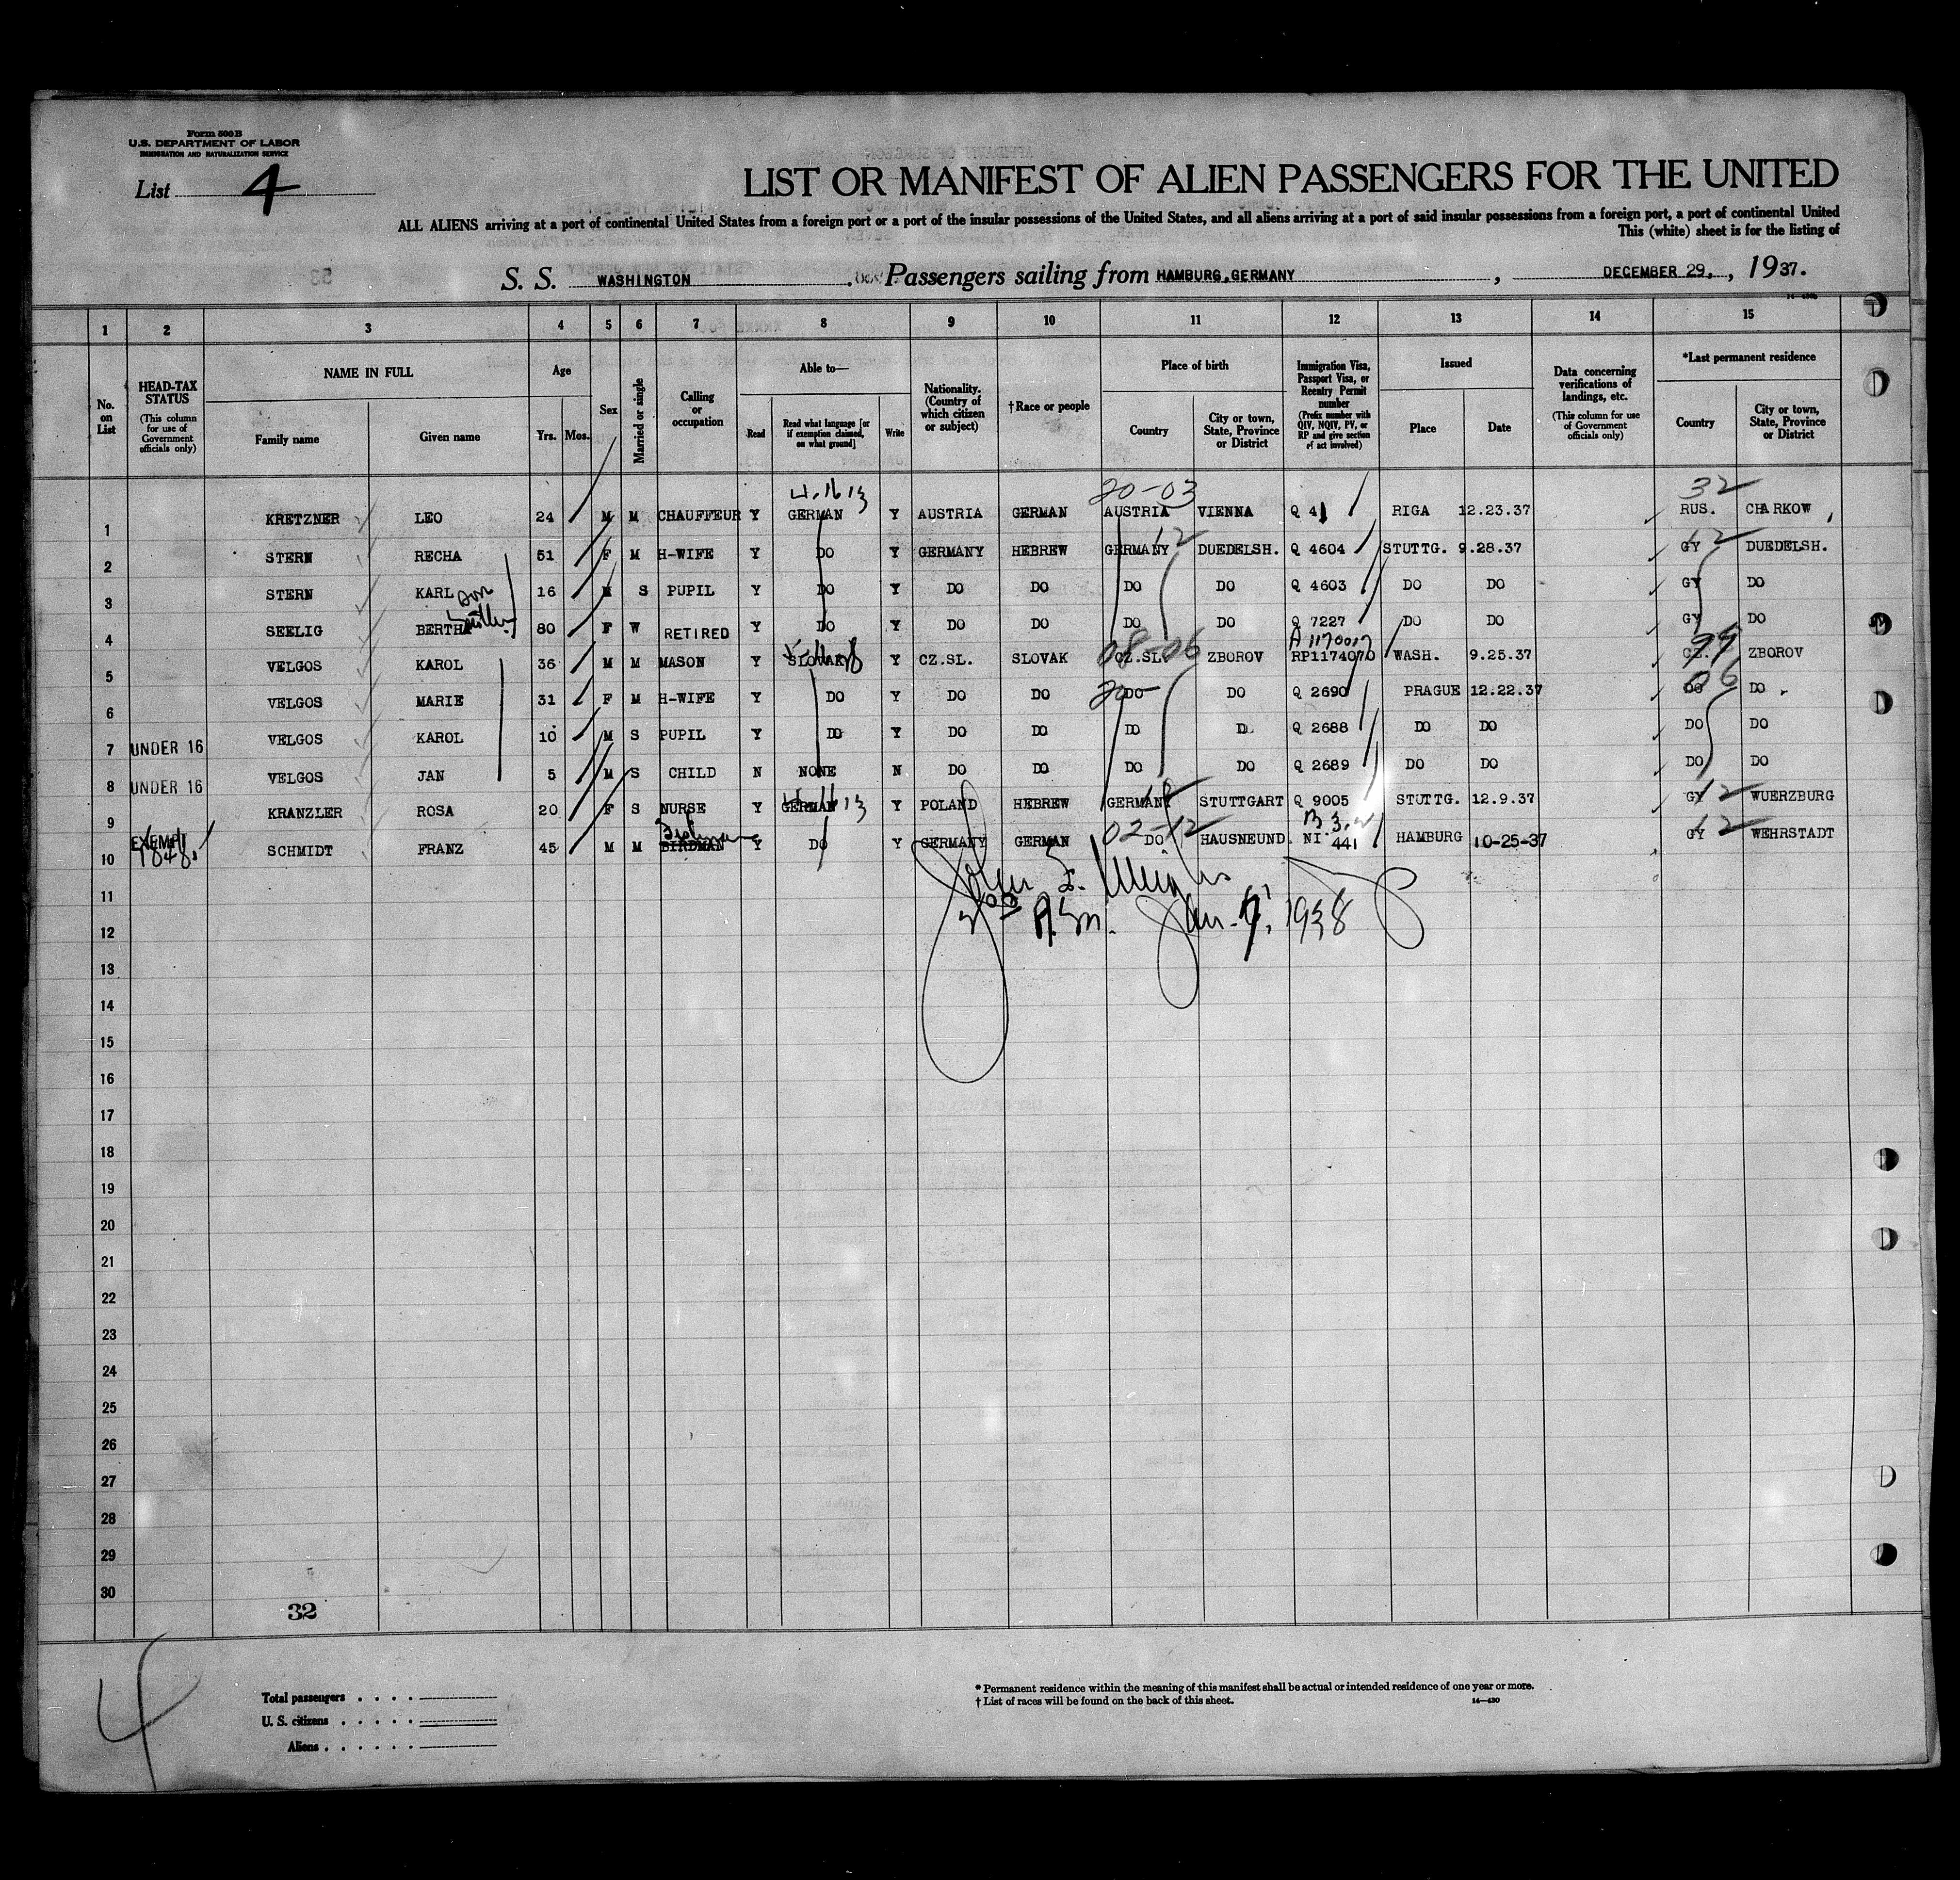 Form 500 B
U.S. DEPARTMENT OF LABOR
IMMIGRATION AND NATURALIZATION SERVICE
List 4
LIST OR MANIFEST OF ALIEN PASSENGERS FOR THE UNITED
ALL ALIENS arriving at a port of continental United States from a foreign port or a port of the insular possessions of the United States, and all aliens arriving at a port of said insular possessions from a foreign port, a port of continental United
This (white) sheet is for the listing of
S. S. WASHINGTON Passengers sailing from HAMBURG, GERMANY, DECEMBER 29, 1937.
1 2 3 4 5 6 7 8 9 10 11 12 13 14 15
No. on List
HEAD-TAX STATUS (This column for use of Government officials only)
NAME IN FULL Family name Given name
Age Yrs. Mos.
Sex
Married or single
Calling or occupation
Able to— Read Read what language [or if exemption claimed, on what ground] Write
Nationality. (Country of which citizen or subject)
†Race or people
Place of birth Country City or town, State, Province or District
Immigration Visa, Passport Visa, or Reentry Permit number (Prefix number with QIV, NQIV, PV, or RP and give section of act involved)
Issued Place Date
Data concerning verifications of landings, etc. (This column for use of Government officials only)
*Last permanent residence Country City or town, State, Province or District
20-03 32
1 KRETZNER LEO 24 M M CHAUFFEUR Y GERMAN Y AUSTRIA GERMAN AUSTRIA VIENNA Q 41 RIGA 12.23.37 RUS. CHARKOW
2 STERN RECHA 51 F M H-WIFE Y DO Y GERMANY HEBREW GERMANY 12 DUEDELSH. Q 4604 STUTTG. 9.28.37 GY 12 DUEDELSH.
3 STERN KARL son 16 M S PUPIL Y DO Y DO DO DO DO Q 4603 DO DO GY DO
4 SEELIG BERTHA mother 80 F W RETIRED Y DO Y DO DO DO DO Q 7227 DO DO GY DO
A1170017
5 VELGOS KAROL 36 M M MASON Y SLOVAK Y CZ.SL. SLOVAK CZ.SL. 08-06 ZBOROV RP1174070 WASH. 9.25.37 CZ. 99 ZBOROV
6 VELGOS MARIE 31 F M H-WIFE Y DO Y DO DO DO DO Q 2690 PRAGUE 12.22.37 DO 06 DO
7 UNDER 16 VELGOS KAROL 10 M S PUPIL Y DO Y DO DO DO DO Q 2688 DO DO DO DO
8 UNDER 16 VELGOS JAN 5 M S CHILD N NONE N DO DO DO DO Q 2689 DO DO DO DO
9 KRANZLER ROSA 20 F S NURSE Y GERMAN Y POLAND HEBREW GERMANY STUTTGART Q 9005 STUTTG. 12.9.37 GY 12 WUERZBURG
10 EXEMPT SCHMIDT FRANZ 45 M M BIRDMAN Y DO Y GERMANY GERMAN DO 02-12 HAUSNEUND. NI 441 HAMBURG 10-25-37 GY 12 WEHRSTADT
11
12 Jan. 1938
13
14
15
16
17
18
19
20
21
22
23
24
25
26
27
28
29
30
32
4
Total passengers
U. S. citizens
Aliens
* Permanent residence within the meaning of this manifest shall be actual or intended residence of one year or more.
† List of races will be found on the back of this sheet.
14—430